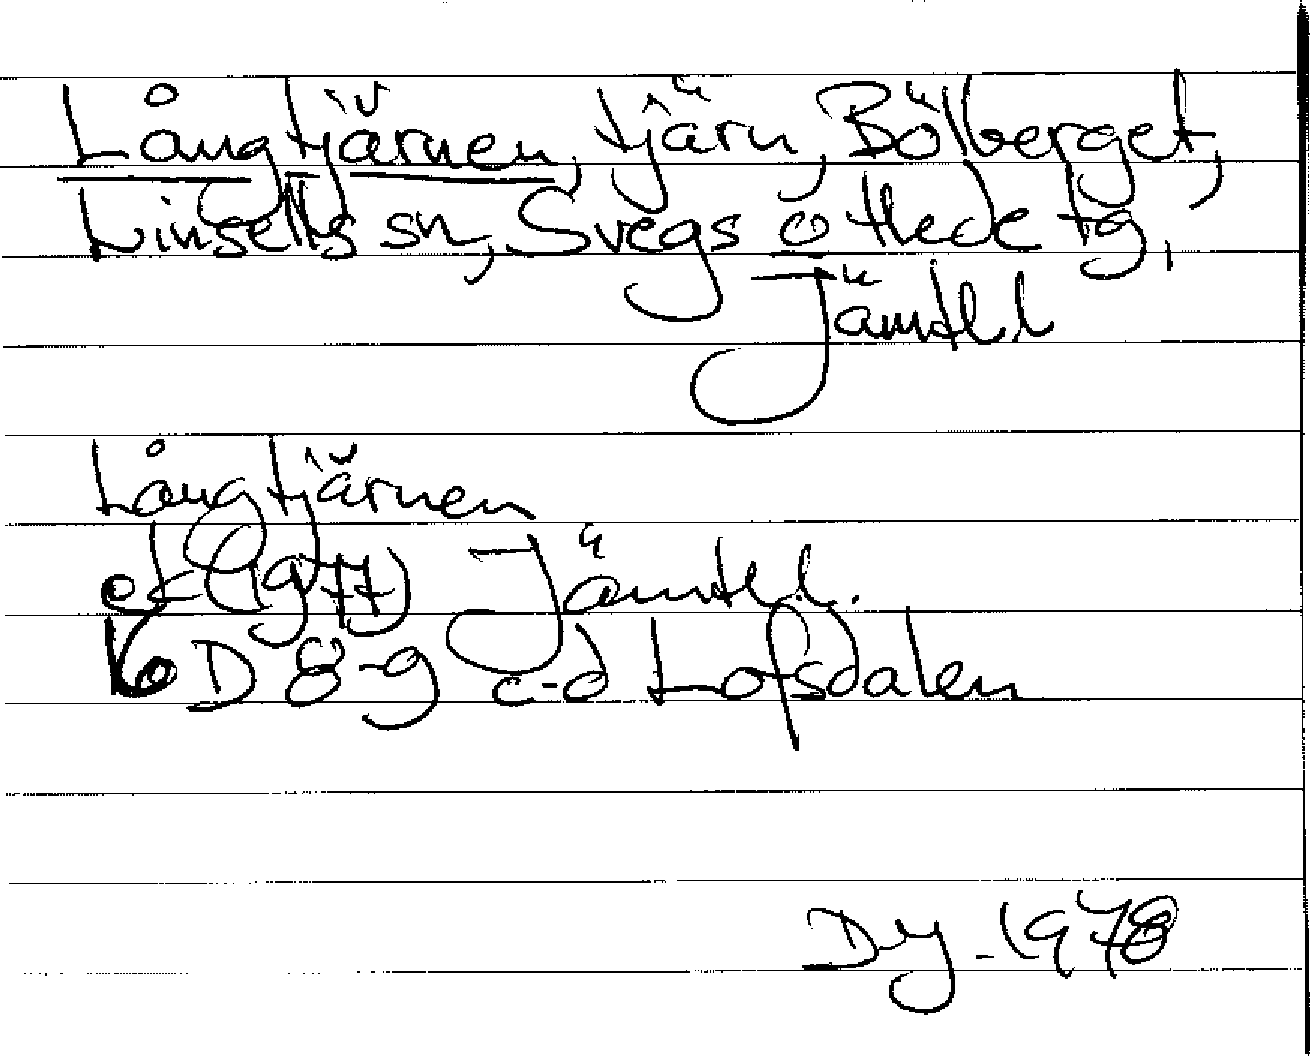 Långtjärnen, tjärn, Bölberget,
Linsells sn, Svegs o Hede tg,
Jämtl.l
Långtjärnen
ek (1977) Jämtl.l.
16 D 8-9 c-d Lofsdalen
Dy -1978